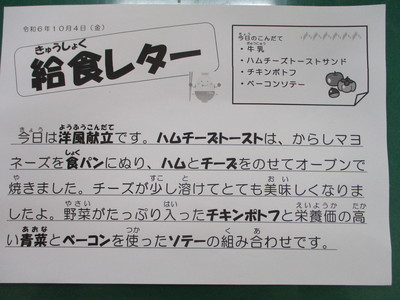 令和6年10月4日（金）
きゅうしょく
給食レター
今日のこんだて
・牛乳
・ハムチーズトーストサンド
・チキンポトフ
・ベーコンソテー
きょう ようふうこんだて
今日は洋風献立です。ハムチーズトーストは、からしマヨ
しょく
ネーズを食パンにぬり、ハムとチーズをのせてオーブンで
や すこ と おい
焼きました。チーズが少し溶けてとても美味しくなりま
やさい はい えいようか たか
したよ。野菜がたっぷり入ったチキンポトフと栄養価の高
あおな つか く あ
い青菜とベーコンを使ったソテーの組み合わせです。